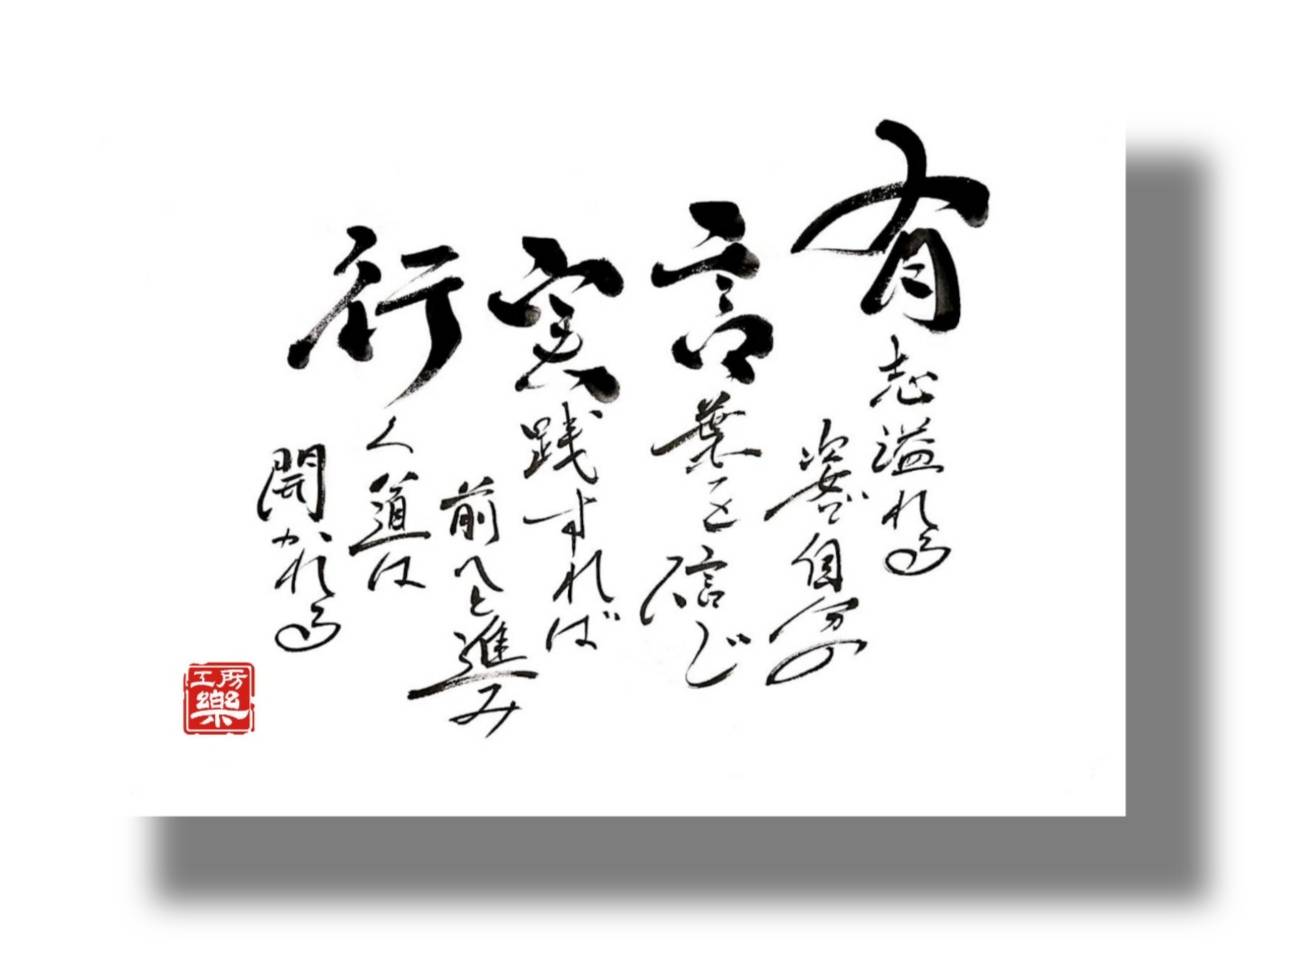 有志溢れる
姿が自分の
言葉を信じ
実践すれば
前へと進み
行く道は
開かれる
工房
樂